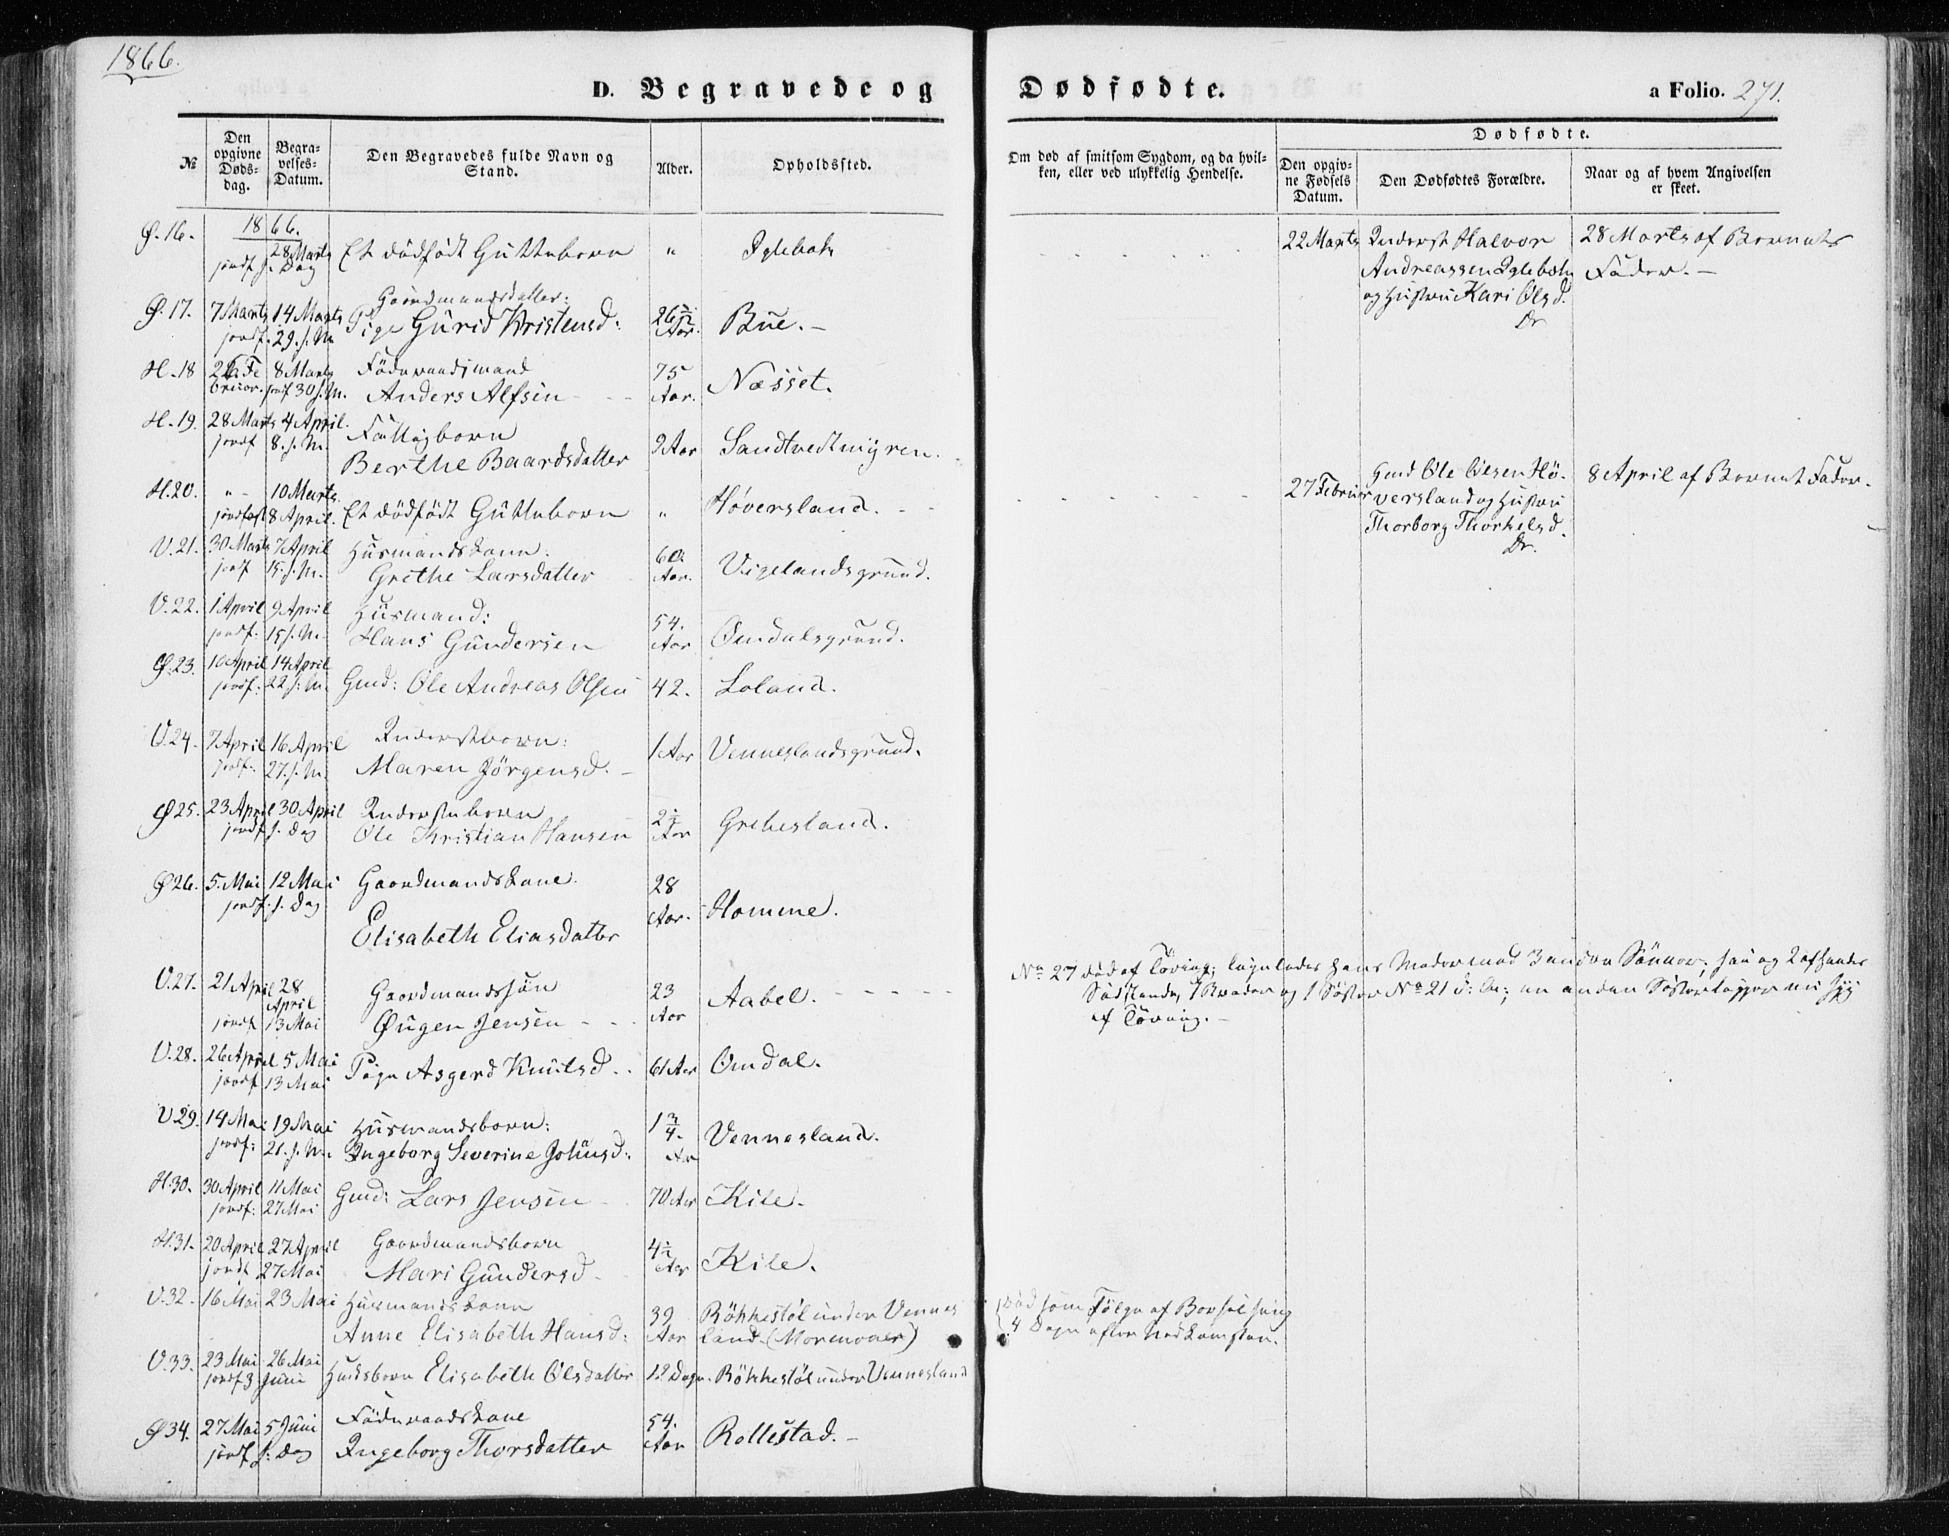 1866.
D. Begravede og Dødfødte.
a Folio. 271.
№
Den opgivne Døds-dag.
Begra-velses-Datum.
Den Begravedes fulde Navn og Stand.
Alder.
Opholdssted.
Om død af smitsom Sygdom, og da hvil-ken, eller ved ulykkelig Hendelse.
Dødfødte.
Den opgiv-ne Fødsels Datum.
Den Dødfødtes Forældre.
Naar og af hvem Angivelsen er skeet.
1866.
Ø. 16. 28 Marts Et dödfödt Guttebarn " Iglebak 22 Marts Inderst Halvor 28 Marts af Barnets
jordf. s. Dag Andreassen Iglebak Fader. -
og Hustru Kari Olsd.
Gaardmandsdatter:
Ø. 17. 7 Marts 14 Marts Pige Gurid Kristensd: 26 1/2 Aar. Bue. -
jordf. 29. s. M.
H. 18 26 Fe 8 Marts Föderaadsmand 75 Næsset.
bruar. jordf 30 s. M. Anders Alfsen Aar.
H. 19. 28 Marts 4 April. Fattigbarn
jordf 8. s. M. Berthe Baardsdatter 9 Aar Sandtvedtmyren.
H. 20. " - 10 Marts. Et dödfödt Guttebarn " Høversland. 27 Februar Gmd Ole Olesen Hö- 8 April af Barnets Fader.
jordfæst 8 April. versland og Hustru
Thorborg Thorkelsd.
V. 21. 30 Marts 7 April Husmandskone: 60. Vigelandsgrund.
jordf 15. s. M. Grethe Larsdatter Aar.
V. 22. 1 April 9 April Husmand: 54. Omdalsgrund.
jordf: 15 s. M. Hans Gundersen Aar
Ø. 23. 10 April 14 April Gmd: Ole Andreas Olsen 42. Loland.
jordf: 22 s. M.
V. 24. 7 April 16 April Inderstbarn: 1 Aar Venneslandsgrund.
jordf: 27. s. M. Maren Jörgensd. -
Ø 25. 23 April 30 April Inderstebarn 2 1/2 Aar Grebesland.
jordf. s. Dag Ole Kristian Hansen
Ø 26. 5. Mai 12 Mai Gaardmandskone. 28 Homme.
jordf. s. Dag Elisabeth Eliasdatter Aar.
V. 27. 21 April 28 April Gaardmandssön 23 Aabel. No 27 död af Tæring; Moder med 3 andre Sönner; han og 2 af hendes
jordf 13 Mai Øugen Jensen Aar 1 Broder og 1 Söster No 21 en anden Söster ligger nu syg
af Tæring. -
V. 28. 26 April 5 Mai Pige Asgerd Knutsd. 61 Aar Omdal.
jordf 13 Mai
V 29. 14 Mai 19 Mai Husmandsbarn: 1 3/4. Vennesland.
jordf: 21. s. M. Ingeborg Severine Johnsd: Aar
H. 30. 30 April 11 Mai Gmd: Lars Jensen 70 Aar Kile.
jordf: 27 Mai
H. 31. 20 April 27 April Gaardmandsbarn 4 1/2 Kile.
jordf 27 Mai Mari Gundersd. Aar
V. 32. 16 Mai 23 Mai Husmandskone 39 Rökkestöl under Vennes Död som Fölge af Barselseng
Anne Elisabeth Hansd: Aar land. 4 Dage efter Nedkomsten.
V. 33. 23 Mai 26 Mai Husdsbarn Elisabeth Olsdatter 12 Dage. Rökkestöl under Vennesland
jordf 3 Juni
Ø 34. 27 Mai 5 Juni Föderaadskone 54. Rollestad. -
jordf s: Dag Ingeborg Thorsdatter Aar